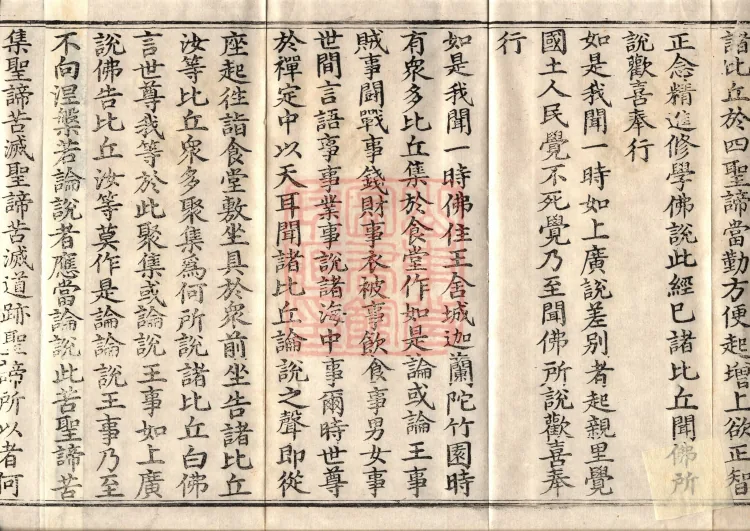 諸比丘於四聖諦當勤方便起增上欲正智
正念精進修學佛說此經已諸比丘聞佛所
說歡喜奉行
如是我聞一時如上廣說差別者起親里覺
國土人民覺不死覺乃至聞佛所說歡喜奉
行
如是我聞一時佛住王舍城迦蘭陀竹園時
有衆多比丘集於食堂作如是論或論王事
賊事鬪戰事錢財事衣被事飲食事男女事
世間言語事事業事說諸海中事爾時世尊
於禪定中以天耳聞諸比丘論說之聲即從
座起往詣食堂敷坐具於衆前坐告諸比丘
汝等比丘衆多聚集爲何所說諸比丘白佛
言世尊我等於此聚集或論說王事如上廣
說佛告比丘汝等莫作是論論說王事乃至
不向涅槃若論說者應當論說此苦聖諦苦
集聖諦苦滅聖諦苦滅道跡聖諦所以者何